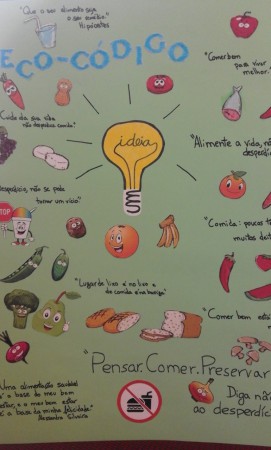 "Que o seu alimento seja
o seu remédio."
Hipócrates
ECO-CÓDIGO
"Comer bem
para viver
melhor."
"Cuide da sua vida
não desperdice comida."
ideia
"Alimente a vida, nã
desperdi
desperdício, não se pode
tornar um vício."
STOP
"Comida: poucos t
muitos deit
"Lugar de lixo é no lixo e
de comida é na barriga"
"Comer bem está
"Pensar. Comer. Preservar
Diga não
ao desperdíc
Uma alimentação saudável
é a base do meu bem
estar, e o meu bem estar
é a base da minha felicidade."
Alessandra